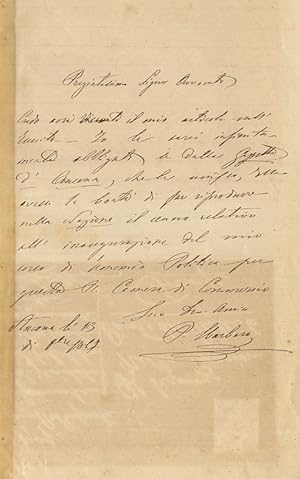 Pregiatissimo Signor Avvocato
Credo avrà ricevuto il mio articolo sull'
Io le sarei infinita-
mente obbligato se dalla Gazzetta
d'Ancona, che le unisco,
avesse la bontà di far riprodurre
nella Nazione il cenno relativo
all'inaugurazione del mio
corso di Economia Politica per
questa R. Camera di Commercio
Suo Dev Amico
Ancona li 13
di
P. Sbarbaro